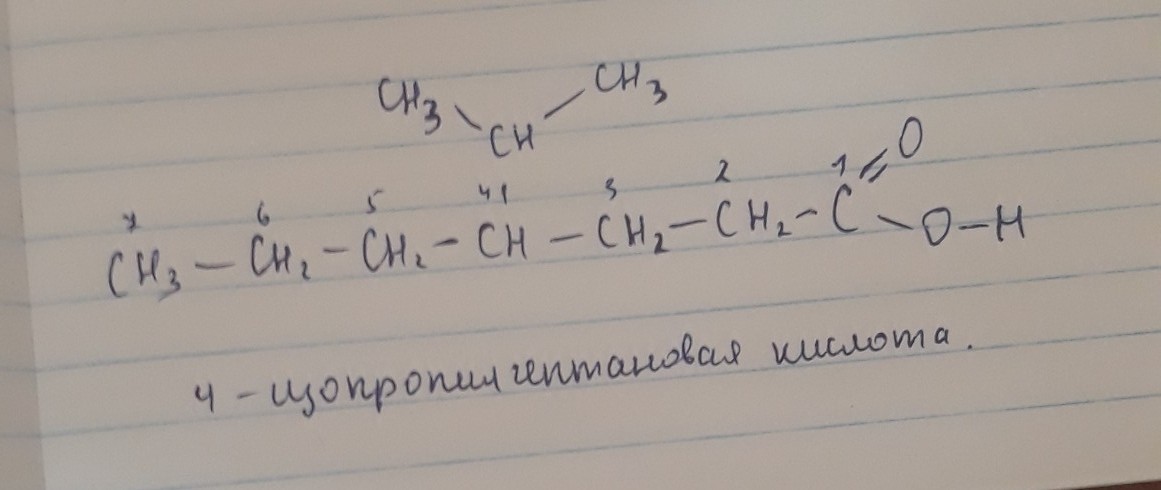 CH₃ CH₃
CH
7 6 5 4 3 2 1 O
CH₃ – CH₂ – CH₂ – CH – CH₂ – CH₂ – C – O – H
4 - изопропилгептановая кислота.